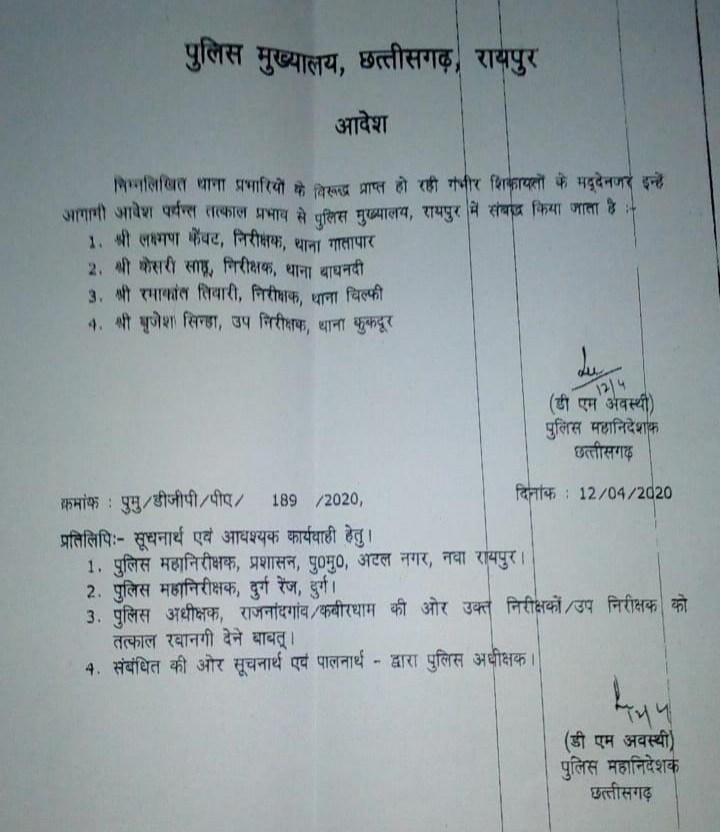 पुलिस मुख्यालय, छत्तीसगढ़, रायपुर
आदेश
निम्नलिखित थाना प्रभारियों के विरूध्द प्राप्त हो रही गंभीर शिकायतों के मद्देनजर इन्हें
आगामी आदेश पर्यन्त तत्काल प्रभाव से पुलिस मुख्यालय, रायपुर में संबध्द किया जाता है :-
1. श्री लक्ष्मण केंवट, निरीक्षक, थाना गातापार
2. श्री केसरी साहू, निरीक्षक, थाना बाघनदी
3. श्री रमाकांत तिवारी, निरीक्षक, थाना चिल्फी
4. श्री बृजेश सिन्हा, उप निरीक्षक, थाना कुकदूर
12/4
(डी एम अवस्थी)
पुलिस महानिदेशक
छत्तीसगढ़
क्रमांक : पुमु/डीजीपी/पीए/ 189 /2020,
दिनांक : 12/04/2020
प्रतिलिपिः- सूचनार्थ एवं आवश्यक कार्यवाही हेतु।
1. पुलिस महानिरीक्षक, प्रशासन, पु0मु0, अटल नगर, नवा रायपुर।
2. पुलिस महानिरीक्षक, दुर्ग रेंज, दुर्ग।
3. पुलिस अधीक्षक, राजनांदगांव/कबीरधाम की ओर उक्त निरीक्षकों/उप निरीक्षक को
तत्काल रवानगी देने बाबत्।
4. संबंधित की ओर सूचनार्थ एवं पालनार्थ - द्वारा पुलिस अधीक्षक।
(डी एम अवस्थी)
पुलिस महानिदेशक
छत्तीसगढ़